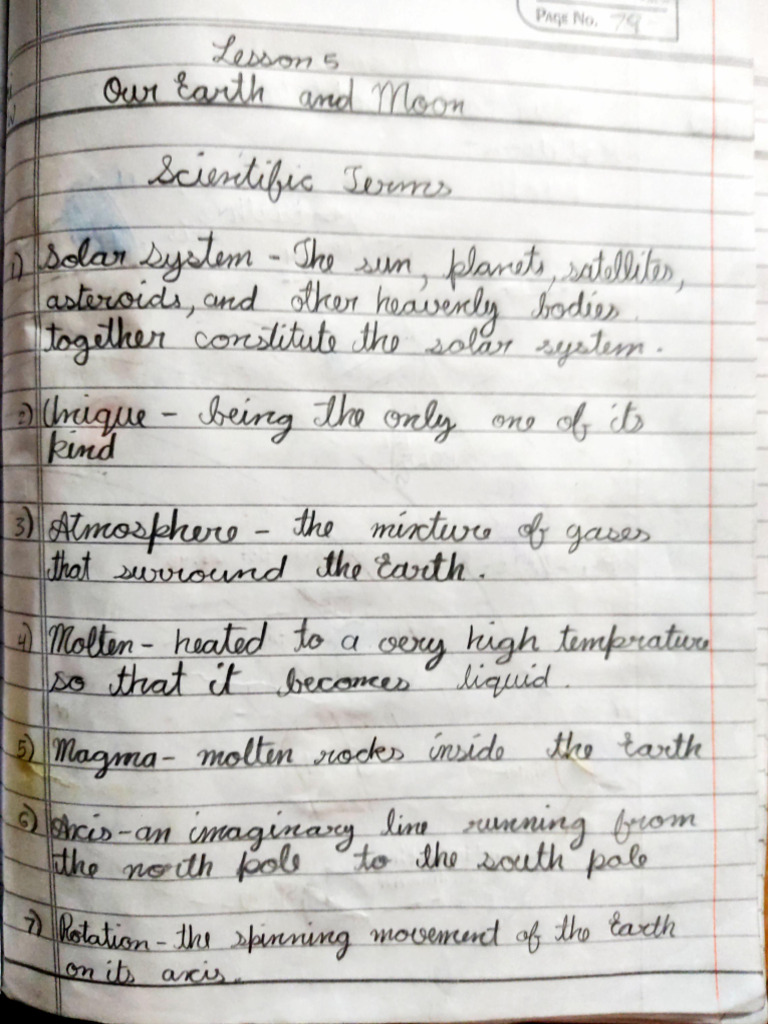 PAGE NO. 79
Lesson 5
Our Earth and Moon
Scientific Terms
1) Solar system - The sun, planets, satellites,
asteroids, and other heavenly bodies
together constitute the solar system.
2) Unique - being the only one of its
kind
3) Atmosphere - the mixture of gases
that surround the Earth.
4) Molten - heated to a very high temprature
so that it becomes liquid.
5) Magma - molten rocks inside the Earth
6) Axis - an imaginary line running from
the north pole to the south pole
7) Rotation - the spinning movement of the Earth
on its axis.